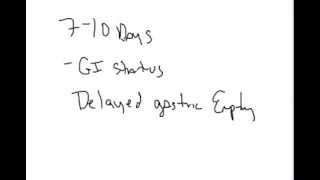 7-10 Days
- GI status
Delayed gastric Empty